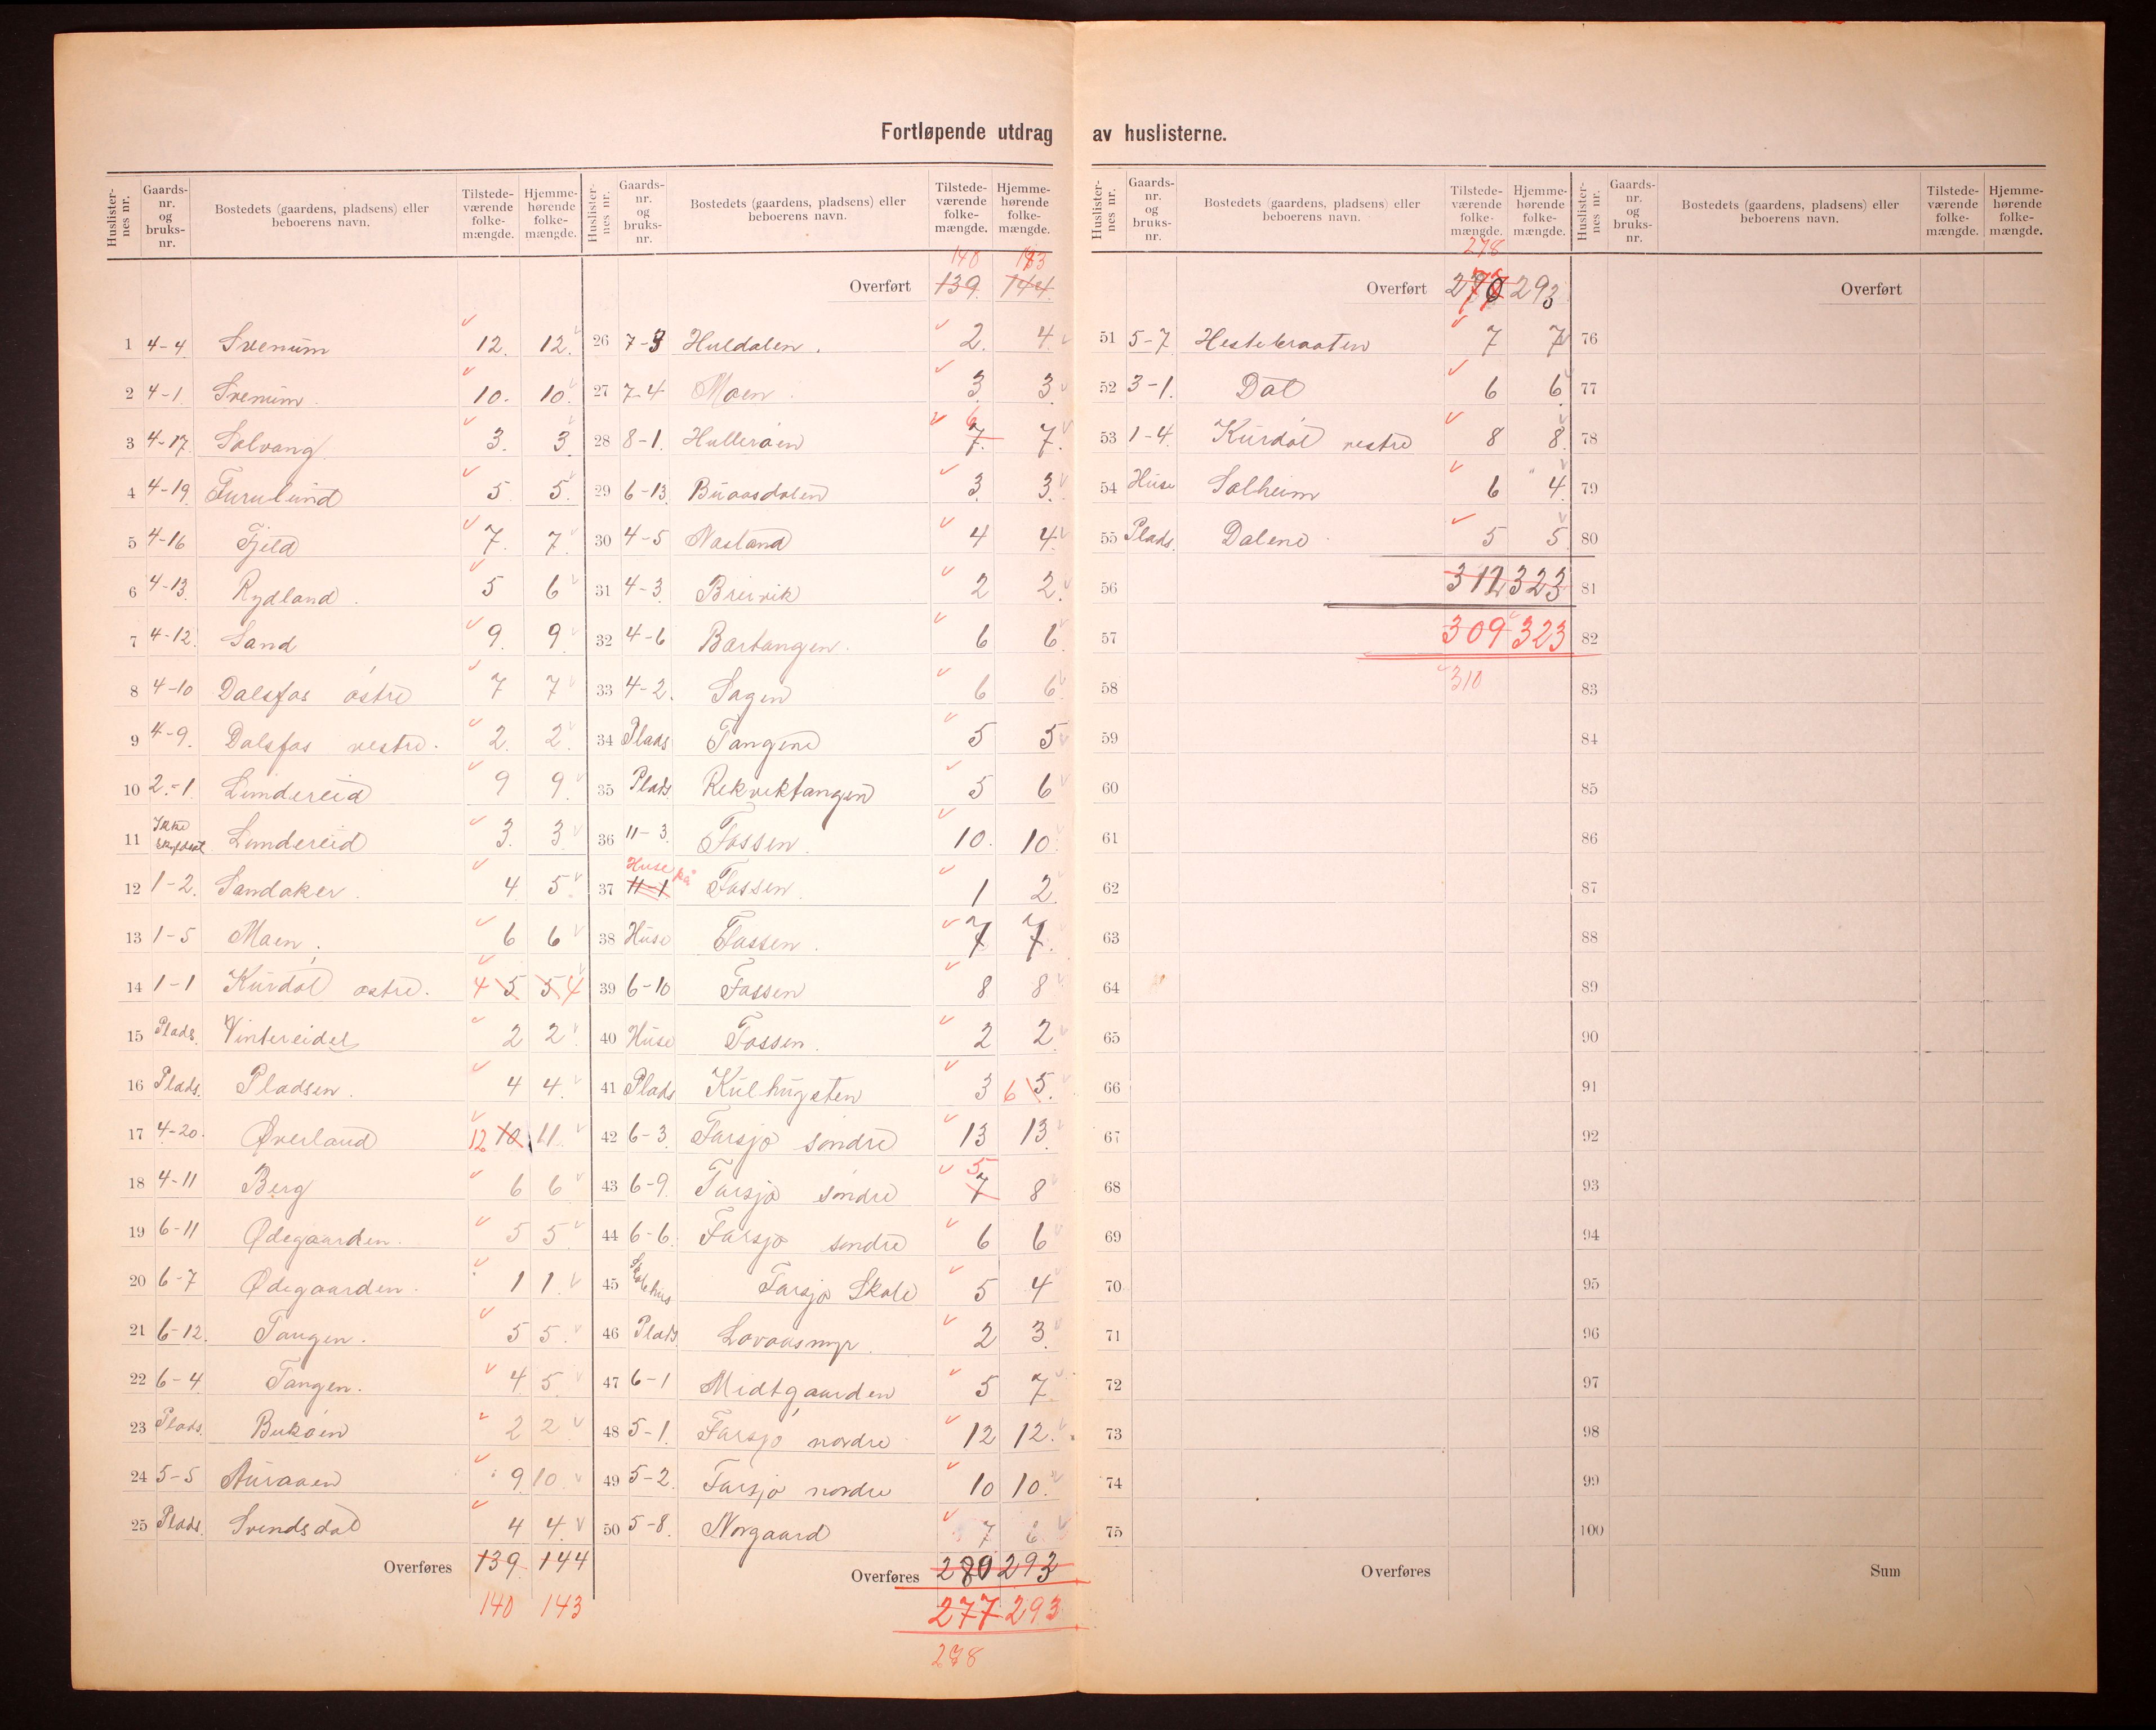 Fortløpende utdrag av huslisterne.
Huslisternes nr. Gaards-nr. og bruks-nr. Bostedets (gaardens, pladsens) eller beboerens navn. Tilstedeværende folkemængde. Hjemmehørende folkemængde.
Huslisternes nr. Gaards-nr. og bruks-nr. Bostedets (gaardens, pladsens) eller beboerens navn. Tilstedeværende folkemængde. Hjemmehørende folkemængde.
Huslisternes nr. Gaards-nr. og bruks-nr. Bostedets (gaardens, pladsens) eller beboerens navn. Tilstedeværende folkemængde. Hjemmehørende folkemængde.
Huslisternes nr. Gaards-nr. og bruks-nr. Bostedets (gaardens, pladsens) eller beboerens navn. Tilstedeværende folkemængde. Hjemmehørende folkemængde.
1 4-4 Svenum 12. 12.
2 4-1 Svenum 10. 10.
3 4-17 Solvang 3. 3.
4 4-19 Furulund 5 5.
5 4-16 Fjeld 7. 7.
6 4-13 Rydland 5 6
7 4-12 Sand 9. 9
8 4-10 Dalsfos østre 7 7
9 4-9. Dalsfos vestre. 2. 2.
10 2-1 Lindereid 9 9.
11 Ikke skyldsat Lundereid 3. 3
12 1-2. Sandaker 4 5
13 1-5 Moen. 6 6
14 1-1 Kurdøl østre. 4 5 5 4
15 Plads. Vintereidet 2 2.
16 Plads. Pladsen. 4 4.
17 4-20. Øverland 12 10 11.
18 4-11 Berg 6 6
19 6-11 Ødegaarden. 5 5
20 6-7 Ødegaarden. 1 1.
21 6-12. Tangen. 5 5.
22 6-4 Tangen. 4 5
23 Plads. Bukøen 2 2
24 5-5 Auraaen 9 10
25 Plads. Svendsdal 4 4
Overføres 139. 144
140 143
148 143
Overført 139. 144.
26 7-3 Huldalen. 2. 4.
27 7-4 Moen 3. 3.
28 8-1. Hullerøen 6 7. 7.
29 6-13 Buaasdalen 3. 3.
30 4-5 Nostand 4 4
31 4-3 Breivik 2 2.
32 4-6 Bortangen. 6 6
33 4-2. Sagen 6 6
34 Plads Tangene 5 5
35 Plads Rekviktangen 5 6
36 11-3. Fossen. 10. 10.
37 Huse på 11-1 Fossen. 1 2.
38 Huse Fossen. 7 7.
39 6-10 Fossen 8 8
40 Huse Fossen. 2 2.
41 Plads Kulhugsten 3 6 5.
42 6-3. Farsjø søndre 13 13
43 6-9. Farsjø søndre 5 7 8
44 6-6. Farsjø søndre 6 6
45 Skolehus Farsjø Skole 5 4
46 Plads Lovaasmyr. 2 3.
47 6-1 Midtgaarden 5 7.
48 5-1. Farsjø nordre 12 12.
49 5-2. Farsjø nordre 10 10.
50 5-8. Norgaard 7 6
Overføres 280 293
277 293
278
278
Overført 293
51 5-7 Hestebraaten 7 7
52 3-1. Dal 6 6
53 1-4. Kurdøl vestre 8 8.
54 Huse Solheim 6 4.
55 Plads. Dalene 5 5
56 312 323
57 309 323
58 310
59
60
61
62
63
64
65
66
67
68
69
70
71
72
73
74
75
Overføres
Overført
76
77
78
79
80
81
82
83
84
85
86
87
88
89
90
91
92
93
94
95
96
97
98
99
100
Sum